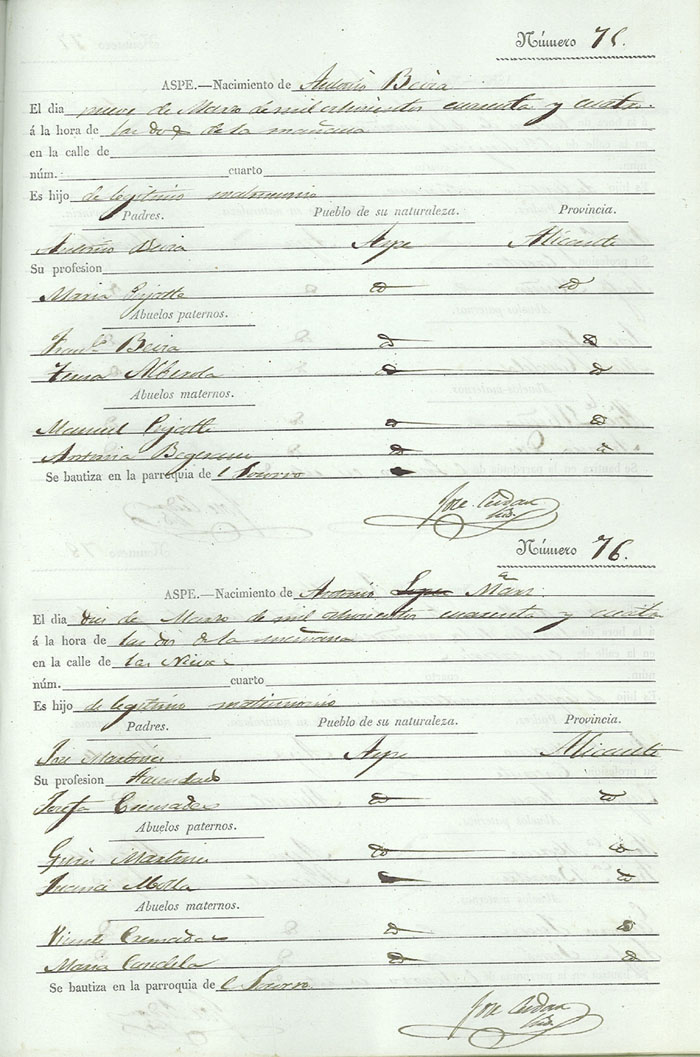 Número 75.
ASPE.—Nacimiento de Antonio Beira
El dia nueve de Marzo de mil ochocientos cuarenta y cuatro.
á la hora de las dos de la mañana
en la calle de
núm. cuarto
Es hijo de legitimo matrimonio
Padres. Pueblo de su naturaleza. Provincia.
Antonio Beira Aspe Alicante
Su profesion
Maria
Abuelos paternos.
Beira
Alberola
Abuelos maternos.
Manuel
Antonia
Se bautiza en la parroquia de l Socorro
Jose Cerdan
Número 76.
ASPE.—Nacimiento de Antonio Lopez Marz
El dia diez de Marzo de mil ochocientos cuarenta y cuatro
á la hora de las dos de la mañana
en la calle de las Nieves
núm. cuarto
Es hijo de legitimo matrimonio
Padres. Pueblo de su naturaleza. Provincia.
Jose Martinez Aspe Alicante
Su profesion Hacendado
Josefa Cremades
Abuelos paternos.
Gines Martinez
Juana Molla
Abuelos maternos.
Vicente Cremades
Maria Candela
Se bautiza en la parroquia de l Socorro
Jose Cerdan